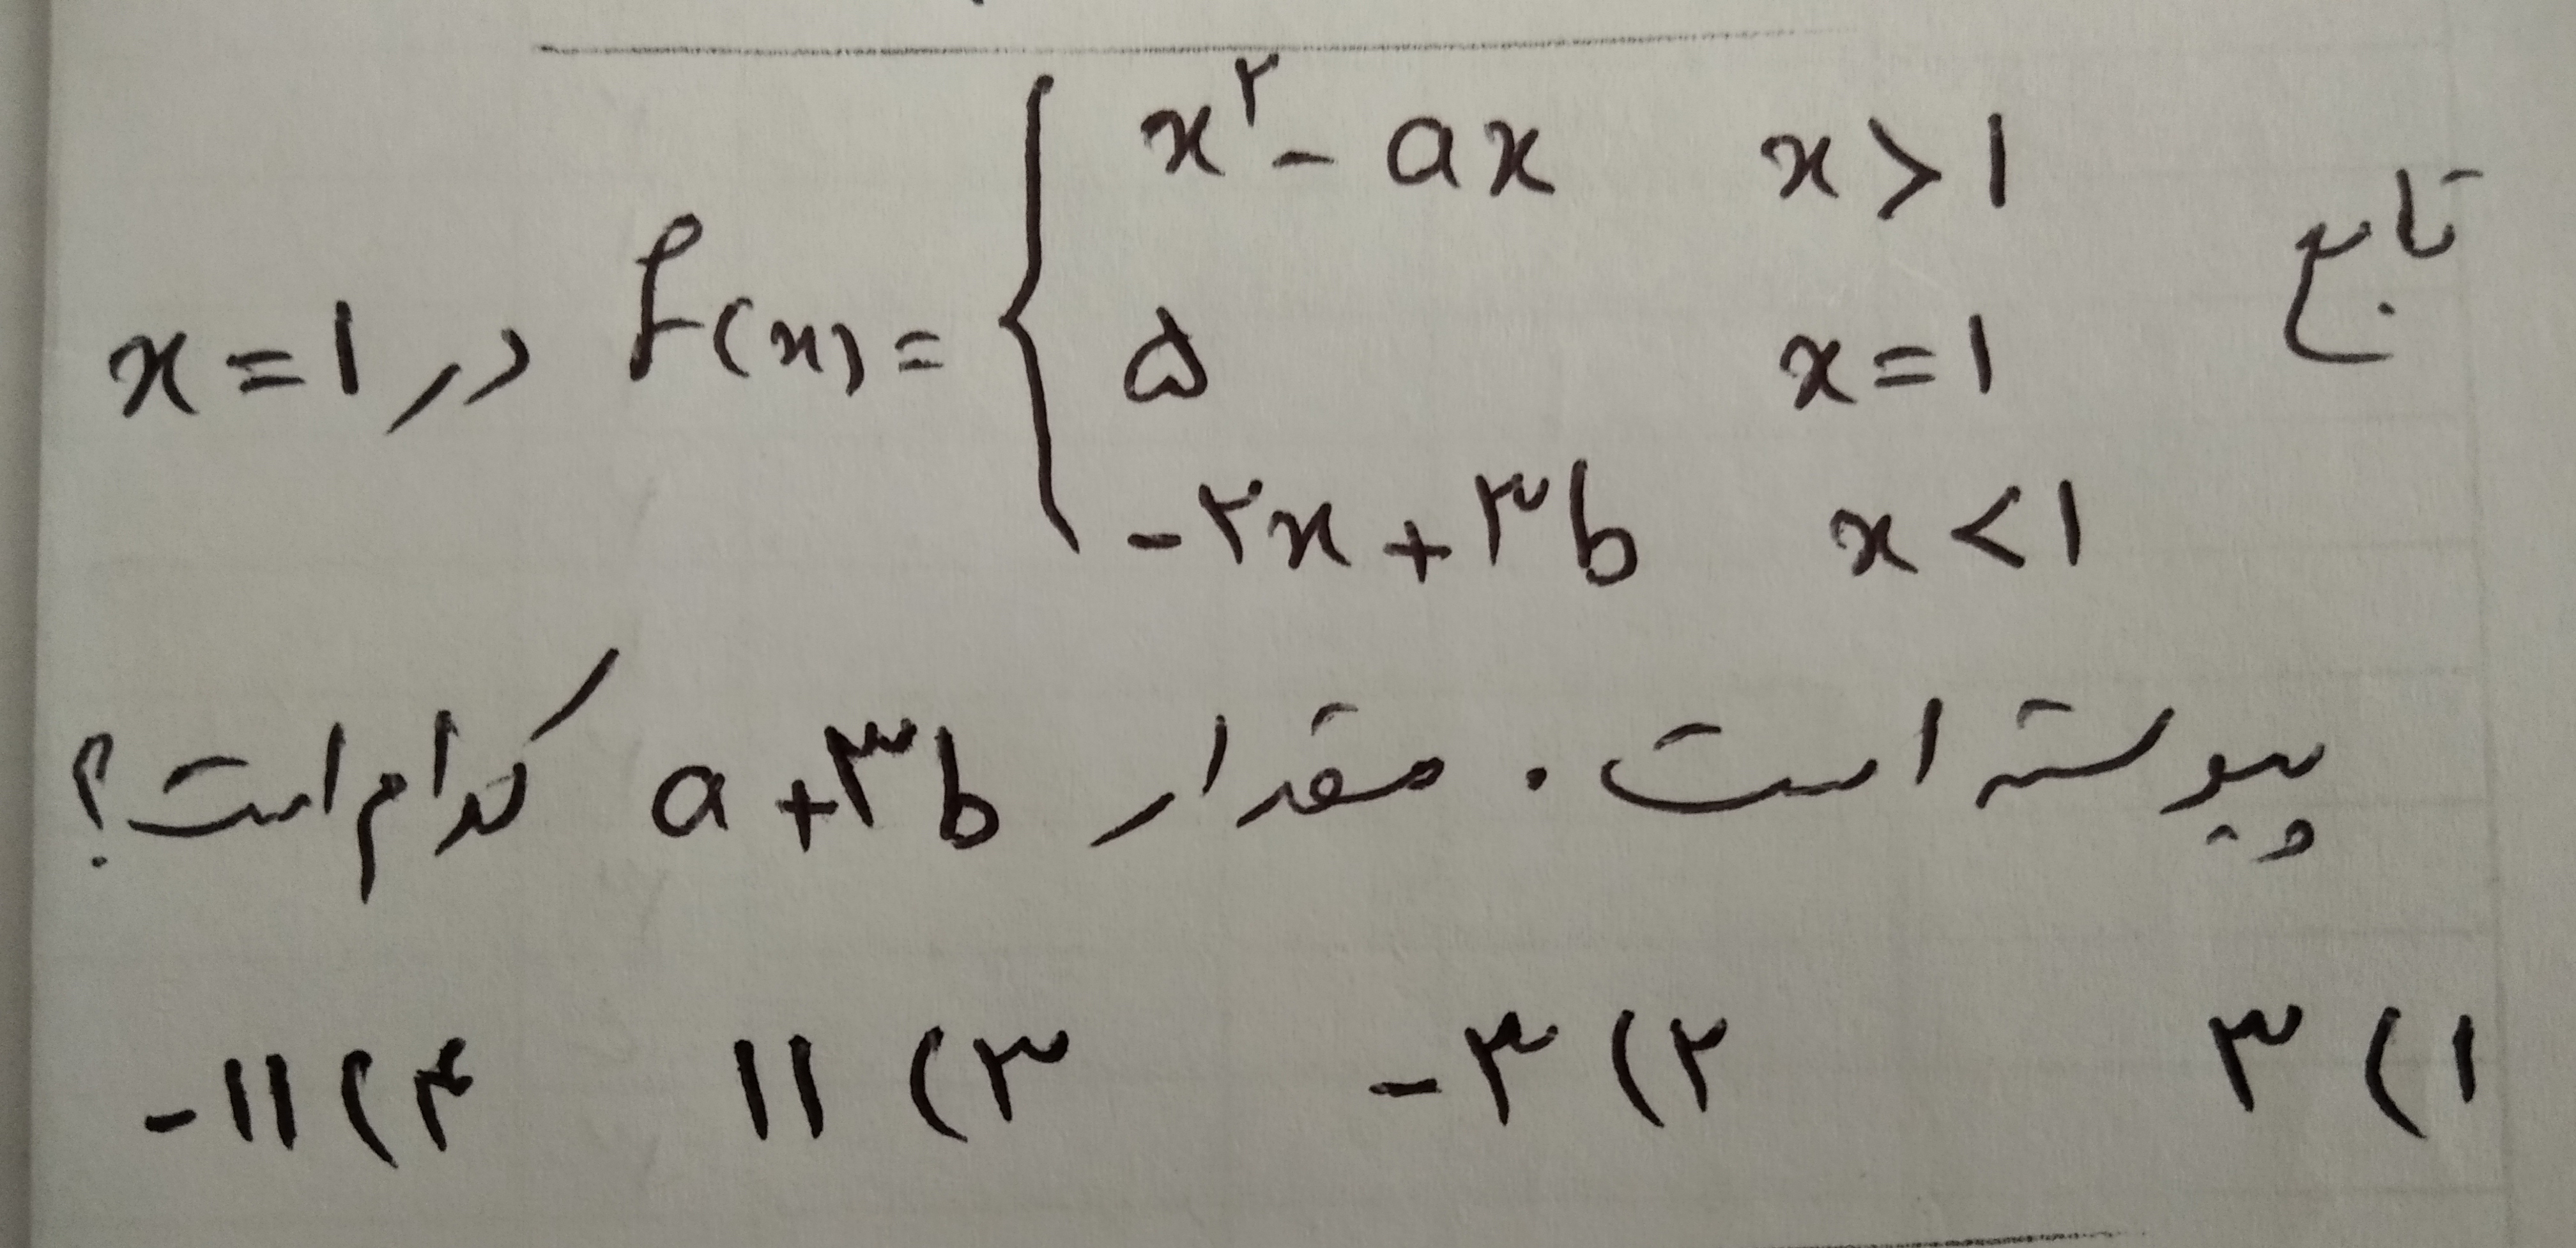 تابع f(x) = { x² - ax    x > ۱
۵    x = ۱
-۲x + ۳b    x < ۱ در x = ۱
پیوسته است . مقدار a + ۳b کدام است ؟
۱) ۳    ۲) -۳    ۳) ۱۱    ۴) -۱۱